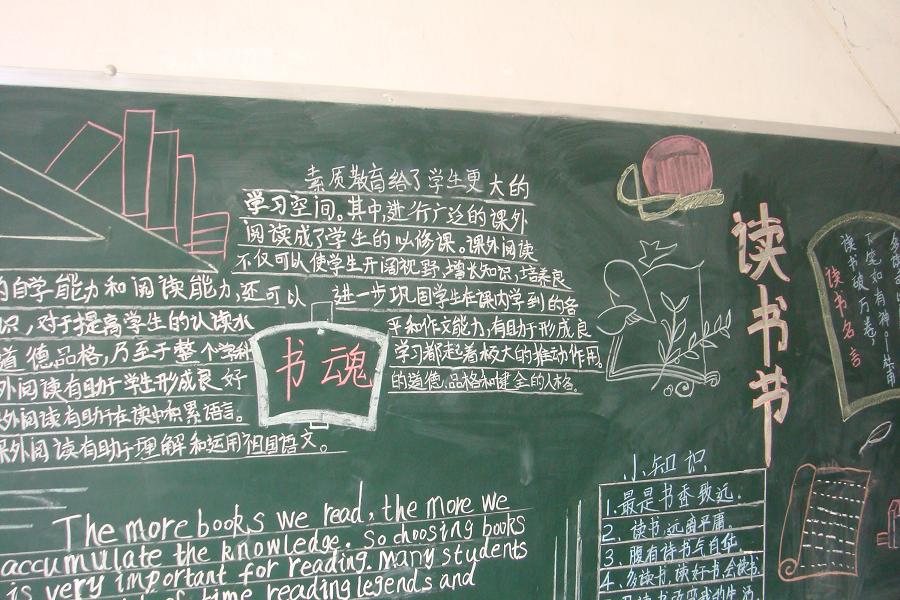 素质教育给了学生更大的
学习空间。其中,进行广泛的课外
阅读成了学生的必修课。课外阅读
不仅可以使学生开阔视野,增长知识,培养良
的自学能力和阅读能力,还可以
进一步巩固学生在课内学到的各
识,对于提高学生的认读水
平和作文能力,有助于形成良
道德品格,乃至于整个学科
学习都起着极大的推动作用。
外阅读有助于学生形成良好
的道德品格和健全的人格。
外阅读有助于在读中积累语言。
课外阅读有助于理解和运用祖国语文。
书魂
读书节
读书破万卷,
下笔如有神。
读书名言
小知识
1.最是书香致远。
2、读书,远离平庸。
3、腹有诗书气自华
4、多读书,读好书,会读书
The more books we read, the more we
accumulate the knowledge. So choosing books
is very important for reading. Many students
of time reading legends and